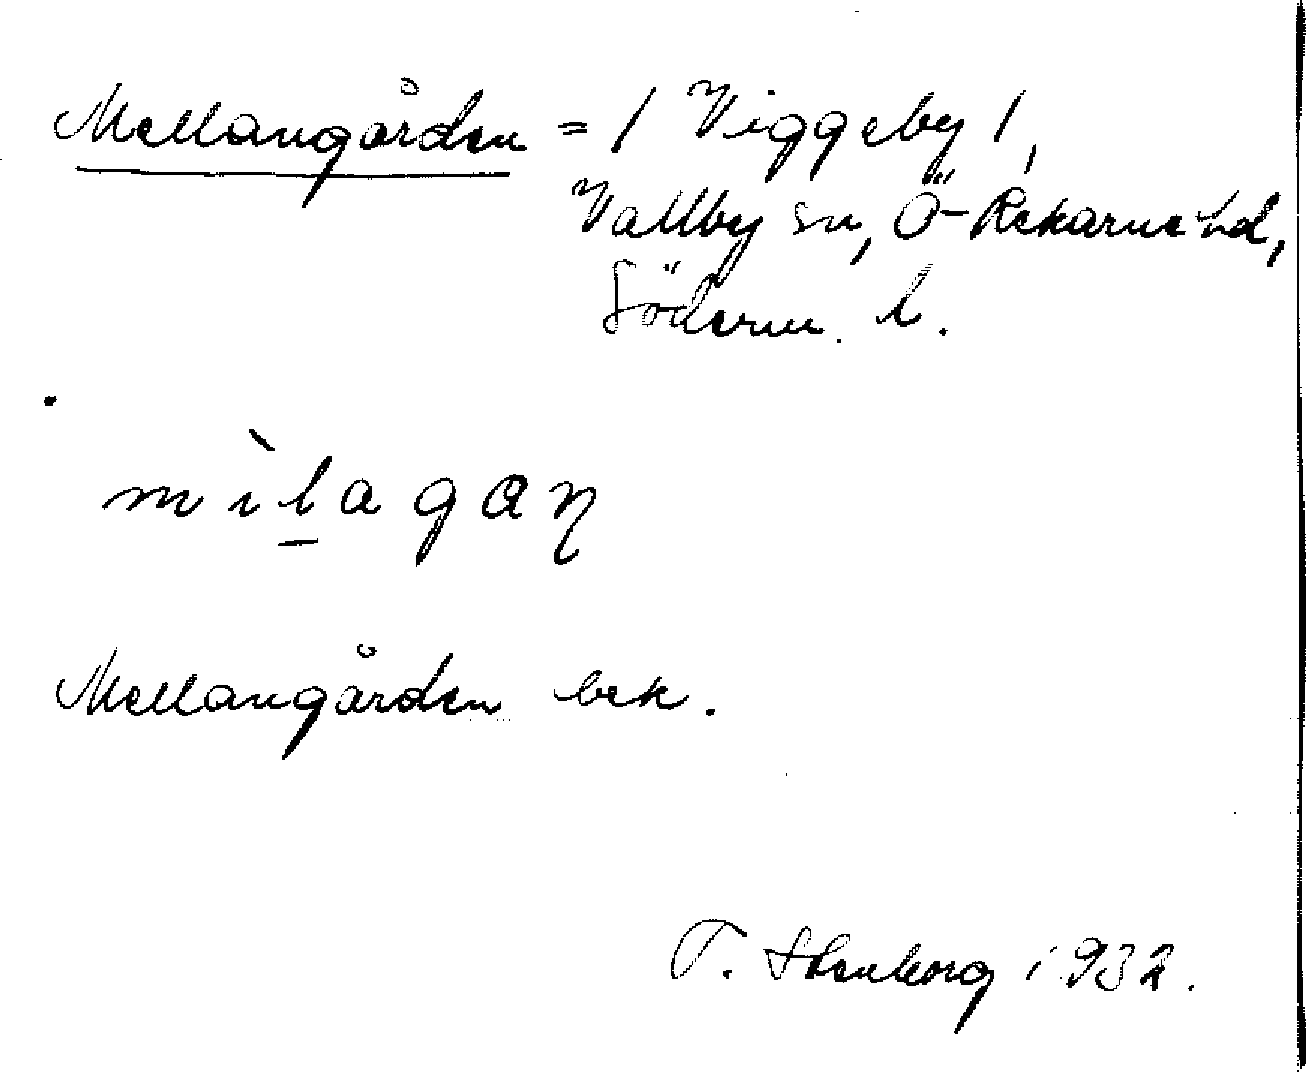 Mellangården = / Viggeby /,
Vallby sn, Ö-Rekarne hd,
Söderm. l.
mìlagaŋ
Mellangården bek.
T. Stenborg 1932.